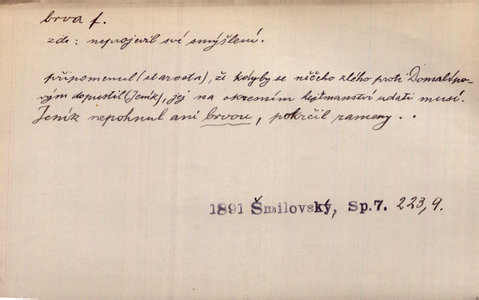 brva f.
zde: neprojevil své smýšlení.
připomenul (starosta), že kdyby se něčeho zlého proti
vým dopustil (Jeník), jej na okresním hejtmanství udati musí.
Jeník nepohnul ani brvou, pokrčil rameny . .
1891 Šmilovský, Sp.7. 223,9.